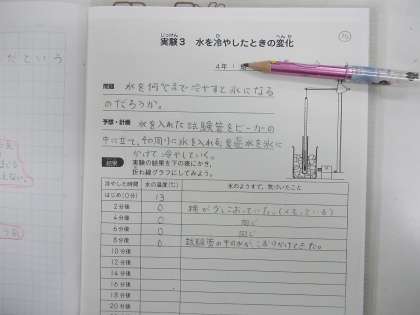 実験3 水を冷やしたときの変化
じっけん
ひ
へんか
4年1組
問題 水を何℃まで冷やすと氷になる
のだろうか。
予想・計画 水を入れた試験管をビーカーの
中に立て、その周りに水を入れ
かけて冷やしていく。
結果 実験の結果を下の表にかき、
折れ線グラフにしてみよう。
冷やした時間 水の温度(℃) 水のようすで、気づいたこと
はじめ(0分) 13
2分後 0
4分後 0 同じ
6分後 0 同じ
8分後 0 試験管の中の水がこおりかけてきた。
10分後
12分後
14分後
16分後
18分後
20分後
だという